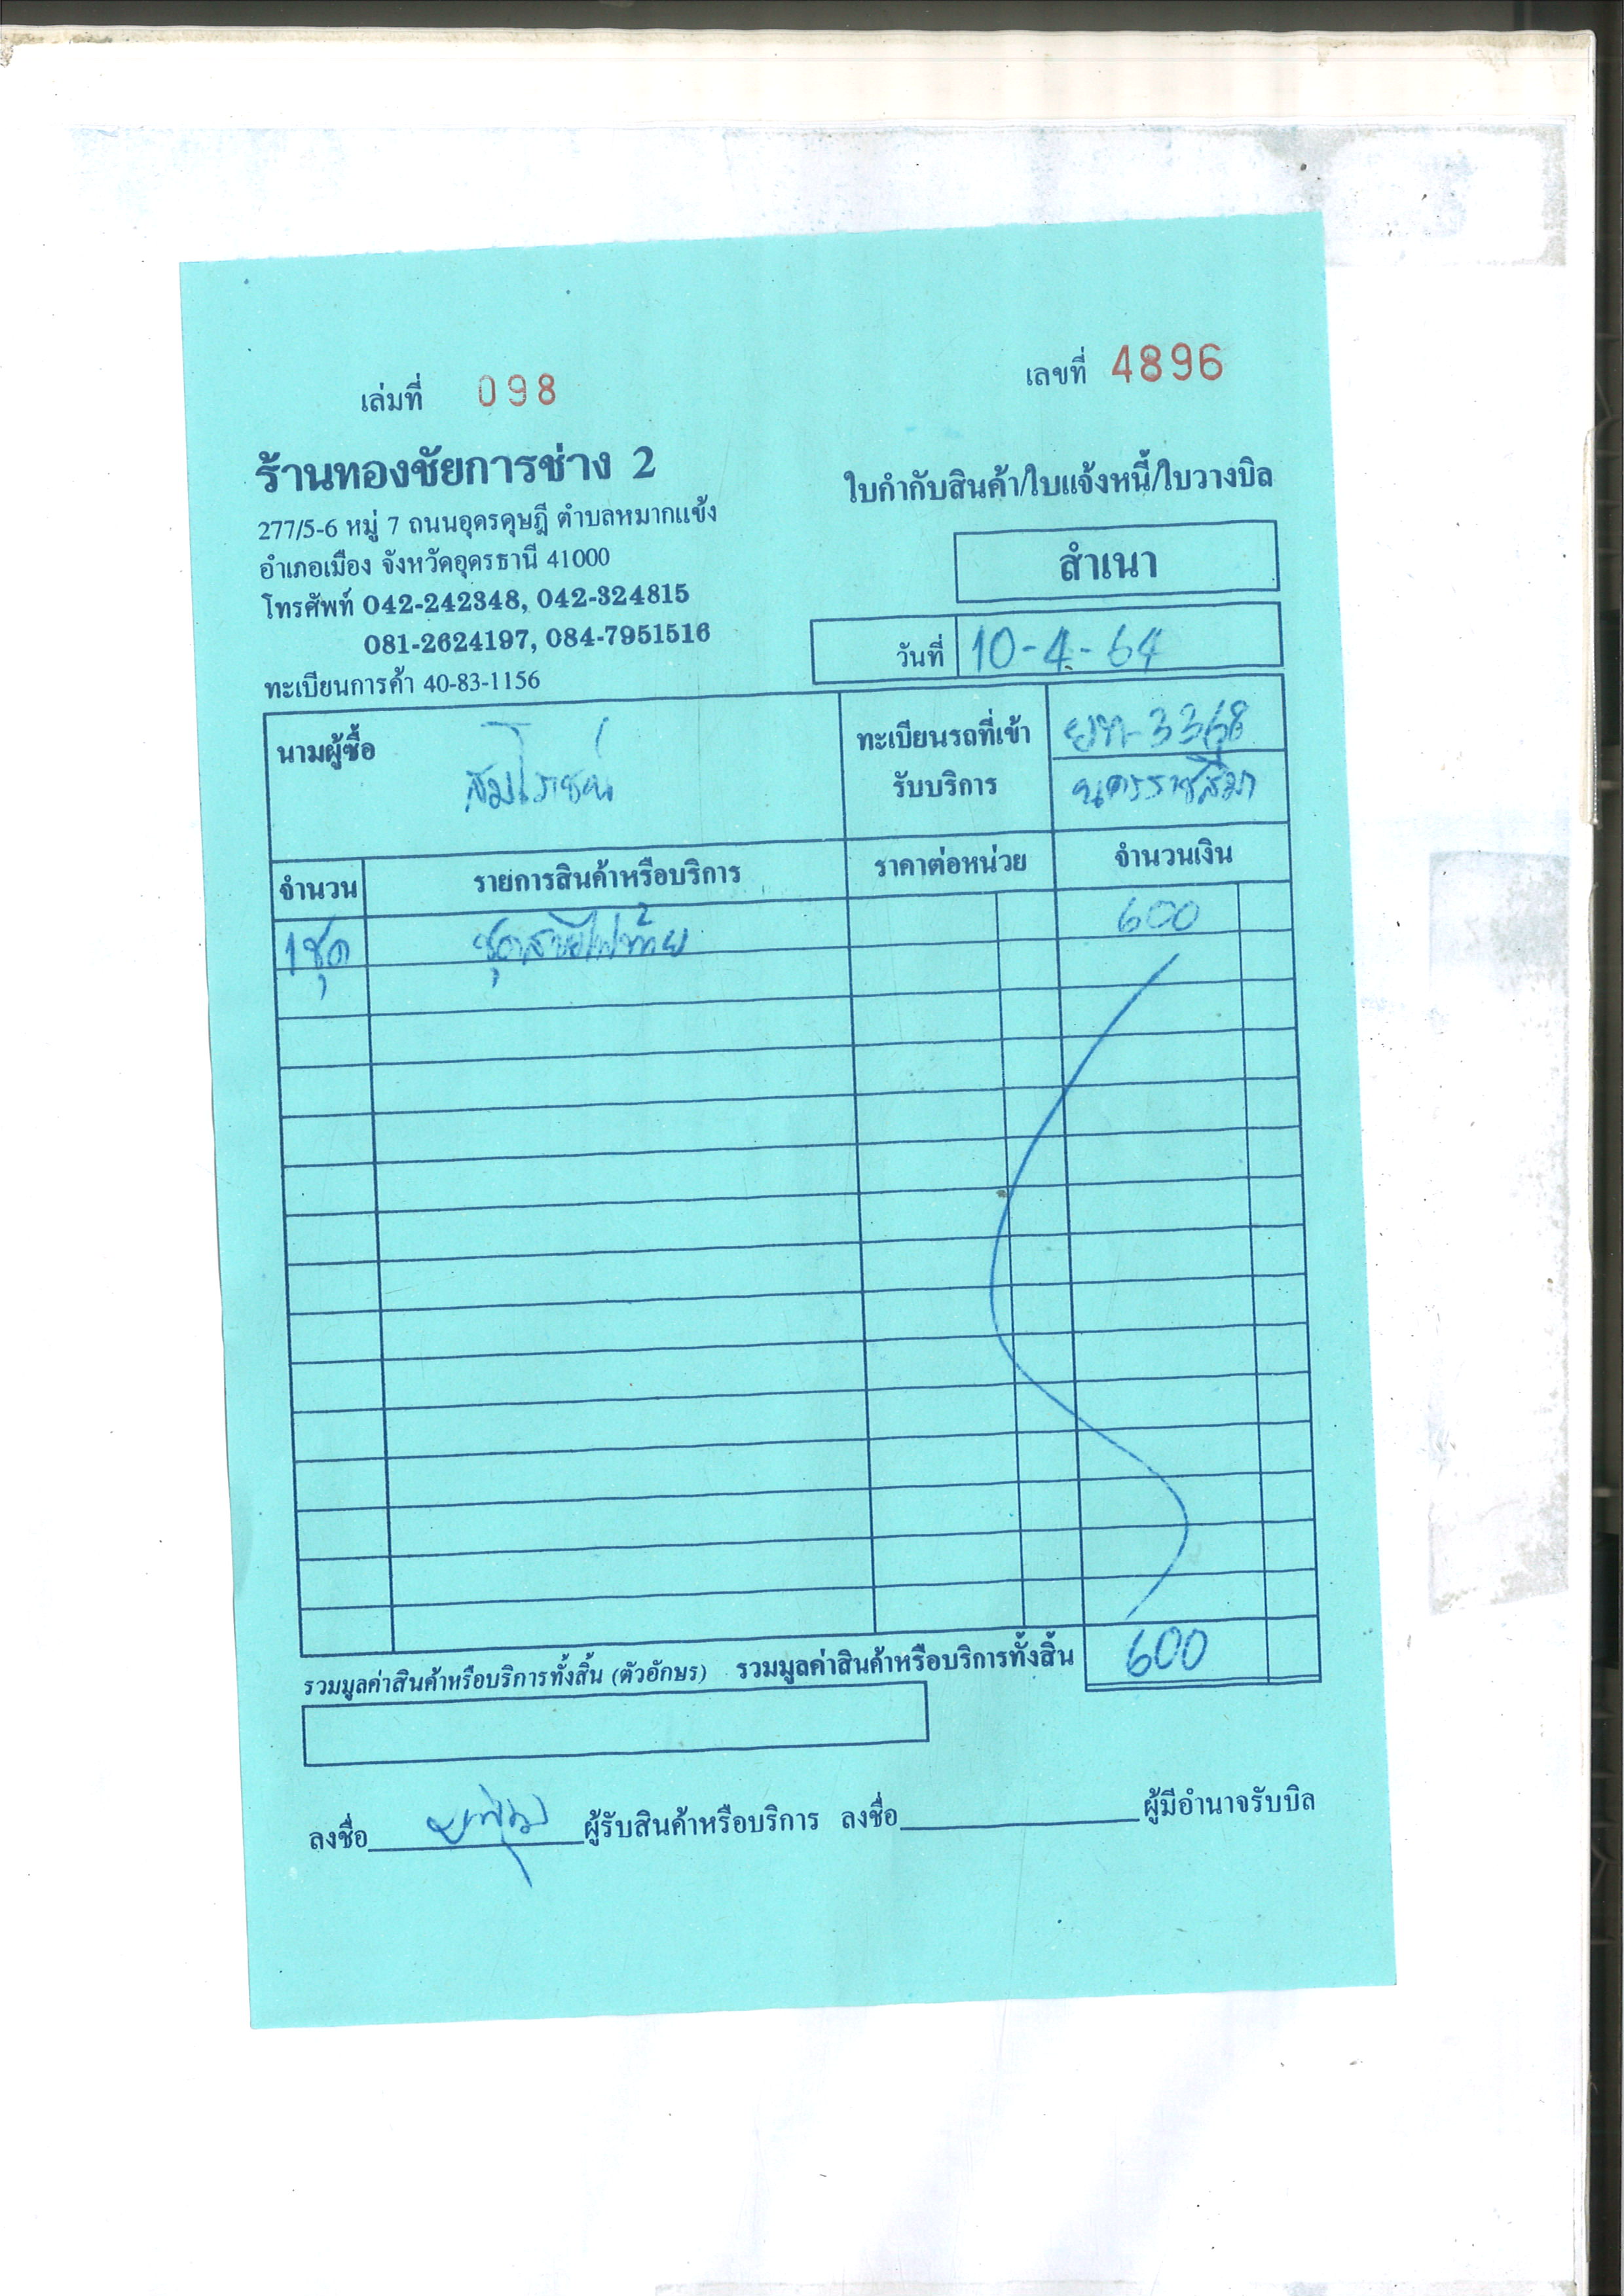 เล่มที่ 098
เลขที่ 4896
ร้านทองชัยการช่าง 2
277/5-6 หมู่ 7 ถนนอุดรดุษฎี ตำบลหมากแข้ง
อำเภอเมือง จังหวัดอุดรธานี 41000
โทรศัพท์ 042-242348, 042-324815
081-2624197, 084-7951516
ทะเบียนการค้า 40-83-1156
ใบกำกับสินค้า/ใบแจ้งหนี้/ใบวางบิล
สำเนา
วันที่ 10-4-64
นามผู้ซื้อ สมโรชน์
ทะเบียนรถที่เข้า
รับบริการ
3368
นครราชสีมา
จำนวน รายการสินค้าหรือบริการ ราคาต่อหน่วย จำนวนเงิน
1 ชุด ชุดสายไฟท้าย 600
รวมมูลค่าสินค้าหรือบริการทั้งสิ้น (ตัวอักษร) รวมมูลค่าสินค้าหรือบริการทั้งสิ้น 600
ลงชื่อ ผู้รับสินค้าหรือบริการ ลงชื่อ ผู้มีอำนาจรับบิล